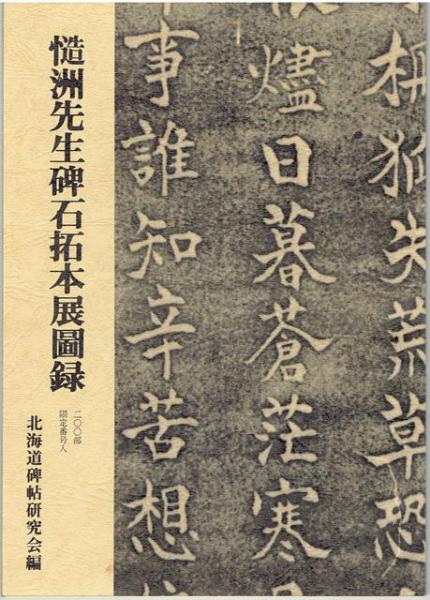 狐失荒草恐
燼日暮蒼茫寒
事誰知辛苦想
慥洲先生碑石拓本展圖録
二〇〇部
限定番号入
北海道碑帖研究会編